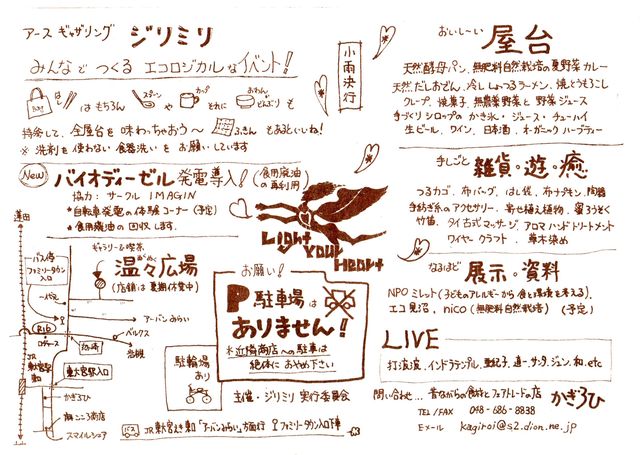 アース ギャザリング ジリミリ
みんなと つくる エコロジカルなイベント!
はし は もちろん スプーン や カップ それに おわん どんぶり も
持参して、全屋台を 味わっちゃおう〜 ふきん もあるといいね!
※ 洗剤を使わない 食器洗い を お願いしています
小雨決行
New バイオディーゼル 発電導入! (食用廃油の再利用)
協力: サークル IMAGIN
*自転車発電の体験コーナー(予定)
*食用廃油の回収します.
Light Your Heart
蓮田
ギャラリー&喫茶
温々広場
(店舗は夏期休業中)
バス停 ファミリータウン入口
アーバンみらい
R16
岩槻
JR 東大宮駅
東大宮駅入口
かぎろひ
スマイルシェア
お願い!
P 駐車場は
ありません!
*近隣商店への駐車は
絶対に おやめ下さい
駐輪場 あり
主催・ジリミリ 実行委員会
バス JR東大宮駅東口「アーバンみらい」方面行 ファミリータウン入口下車
おいし〜い 屋台
天然酵母パン、無肥料自然栽培の夏野菜カレー
天然だしおでん、冷ししょうゆラーメン、焼とうもろこし
クレープ、焼菓子、無農薬野菜と野菜ジュース
手づくりシロップの かき氷・ジュース・チューハイ
生ビール、ワイン、日本酒、オーガニックハーブティー
手しごと 雑貨・遊・癒
つるカゴ、布バッグ、はし袋、布ナプキン、陶器
手紡ぎ糸のアクセサリー、寄せ植え植物、蜜ろうそく
竹笛、タイ古式マッサージ、アロマハンドトリートメント
ワイヤークラフト、草木染め
なるほど 展示・資料
NPOミレット(子どものアレルギーから食と環境を考える)、
エコ見沼、nico(無肥料自然栽培) (予定)
LIVE
打波波、インドラテンプル、亜紀子、道一、サンタ、ジュン、和.etc
問い合わせ… 昔ながらの食材とフェアトレードの店 かぎろひ
TEL/FAX 048-686-8838
Eメール kagiroi@s2.dion.ne.jp